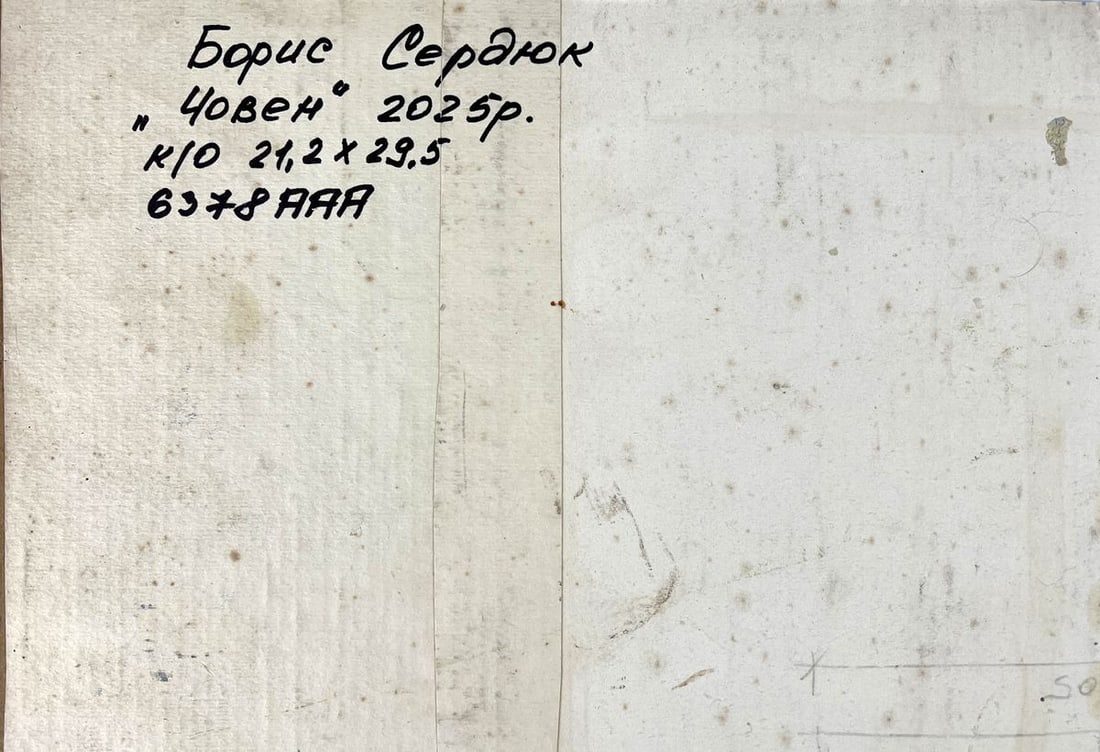 Борис Сердюк
„Човен“ 2025р.
к/о 21,2 х 29.5
6378ААА
50